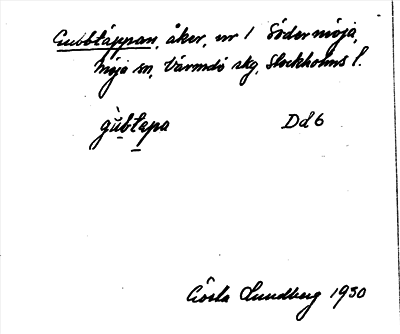 Gubbtäppan, åker, nr 1 Södermöja,
Möja sn, Värmdö skg, Stockholms l.
gùbtapa Dd6
Gösta Lundberg 1930